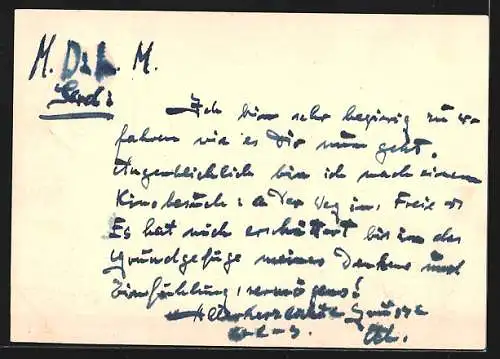 M. D. L. M.
Gerd:
Ich bin sehr begierig zu er-
fahren wie es Dir nun geht.
Augenblicklich bin ich nach einem
Kinobesuch: "Der Weg ins Freie"
Es hat mich erschüttert bis in das
Grundgefüge meines Denkens und
Einfühlungsvermögens!
Allerherzlichste Grüsse